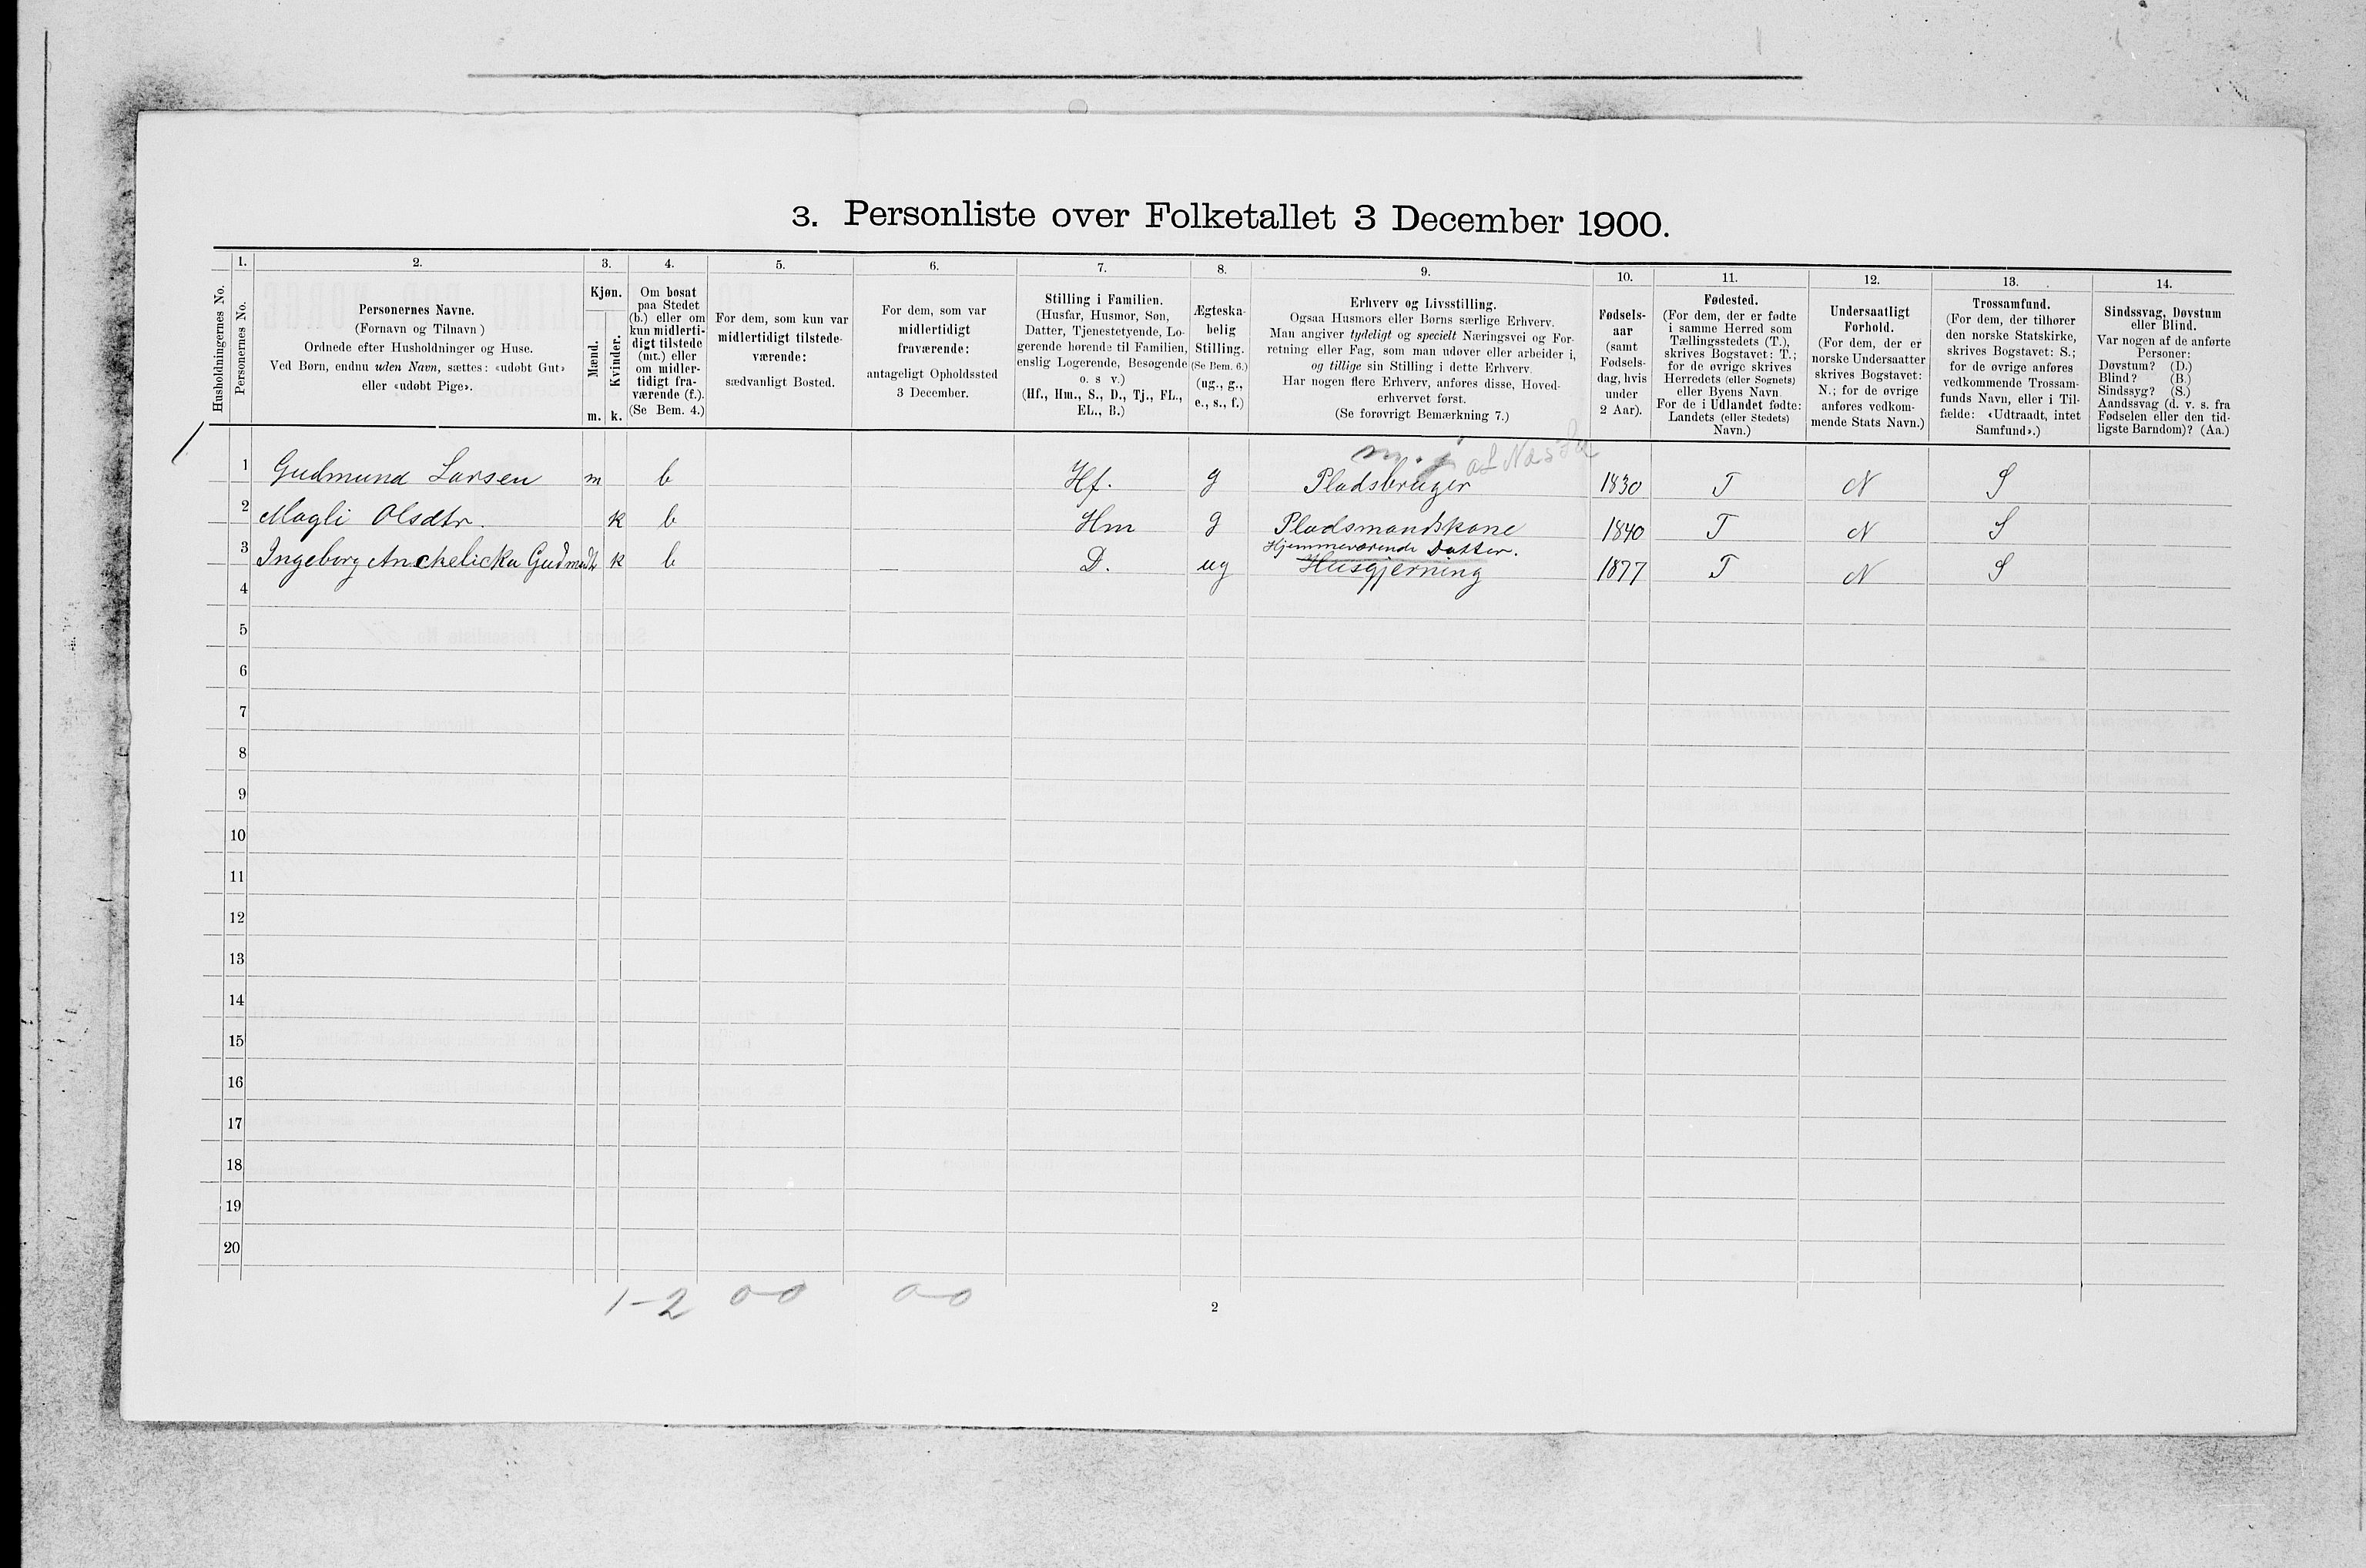 3. Personliste over Folketallet 3 December 1900.
1. 2. 3. 4. 5. 6. 7. 8. 9. 10. 11. 12. 13. 14.
Husholdningernes No.
Personernes No.
Personernes Navne.
(Fornavn og Tilnavn )
Ordnede efter Husholdninger og Huse.
Ved Børn, endnu uden Navn, sættes: «udøbt Gut»
eller «udøbt Pige».
Kjøn.
Mænd.
Kvinder.
m. k.
Om bosat
paa Stedet
(b.) eller om
kun midlerti-
digt tilstede
(mt.) eller
om midler-
tidigt fra-
værende (f.).
(Se Bem. 4.)
For dem, som kun var
midlertidigt tilstede-
værende:
sædvanligt Bosted.
For dem, som var
midlertidigt
fraværende:
antageligt Opholdssted
3 December.
Stilling i Familien.
(Husfar, Husmor, Søn,
Datter, Tjenestetyende, Lo-
gerende hørende til Familien,
enslig Logerende, Besøgende
o. s v.)
(Hf., Hm., S., D., Tj., FL.,
EL., B.)
Ægteska-
belig
Stilling.
(Se Bem. 6.)
(ug., g.,
e., s., f.)
Erhverv og Livsstilling.
Ogsaa Husmors eller Børns særlige Erhverv.
Man angiver tydeligt og specielt Næringsvei og For-
retning eller Fag, som man udøver eller arbeider i,
og tillige sin Stilling i dette Erhverv.
Har nogen flere Erhverv, anføres disse, Hoved-
erhvervet først.
(Se forøvrigt Bemærkning 7.)
Fødsels-
aar
(samt
Fødsels-
dag, hvis
under
2 Aar).
Fødested.
(For dem, der er fødte
i samme Herred som
Tællingsstedets (T.),
skrives Bogstavet: T.;
for de øvrige skrives
Herredets (eller Sognets)
eller Byens Navn.
For de i Udlandet fødte:
Landets (eller Stedets)
Navn.)
Undersaatligt
Forhold.
(For dem, der er
norske Undersaatter
skrives Bogstavet:
N.; for de øvrige
anføres vedkom-
mende Stats Navn.)
Trossamfund.
(For dem, der tilhører
den norske Statskirke,
skrives Bogstavet: S.;
for de øvrige anføres
vedkommende Trossam-
funds Navn, eller i Til-
fælde: «Udtraadt, intet
Samfund».)
Sindssvag, Døvstum
eller Blind.
Var nogen af de anførte
Personer:
Døvstum? (D.)
Blind? (B.)
Sindssyg? (S.)
Aandssvag (d. v. s. fra
Fødselen eller den tid-
ligste Barndom)? (Aa.)
1 Gudmund Larsen m b Hf. g Pladsbruger 1830 T N S
2 Magli Olsdtr. k b Hm g Pladsmandskone 1840 T N S
Hjemmeværende Datter.
3 Ingeborg Anckelicka Gudmdt k b — D. ug Husgjerning 1877 T N S
4
5
6
7
8
9
10
11
12
13
14
15
16
17
18
19
20
1-2 0-0 0-0
2